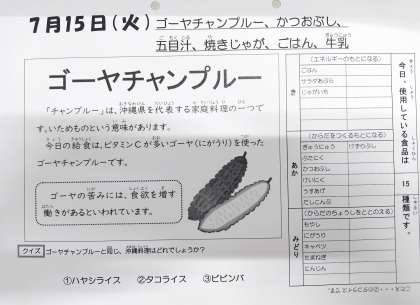 7月15日(火) ゴーヤチャンプルー、かつおぶし、
五目汁、焼きじゃが、ごはん、牛乳
ゴーヤチャンプルー
「チャンプルー」は、沖縄県を代表する家庭料理の一つで
す。いためものという意味があります。
今日の給食は、ビタミンCが多いゴーヤ(にがうり)を使った
ゴーヤチャンプルーです。
ゴーヤの苦みには、食欲を増す
働きがあるといわれています。
クイズ ゴーヤチャンプルーと同じ、沖縄料理はどれでしょうか?
①ハヤシライス ②タコライス ③ビビンバ
今日、使用している食品は
15
種類です。
き
(エネルギーのもとになる)
ごはん
サラダあぶら
じゃがいも
あか
(からだをつくるもとになる)
ぎゅうにゅう
ぶたにく
かつおぶし
けいにく
うすあげ
だしこんぶ
みどり
(からだのちょうしをととのえる)
もやし
にがうり
キャベツ
たまねぎ
にんじん